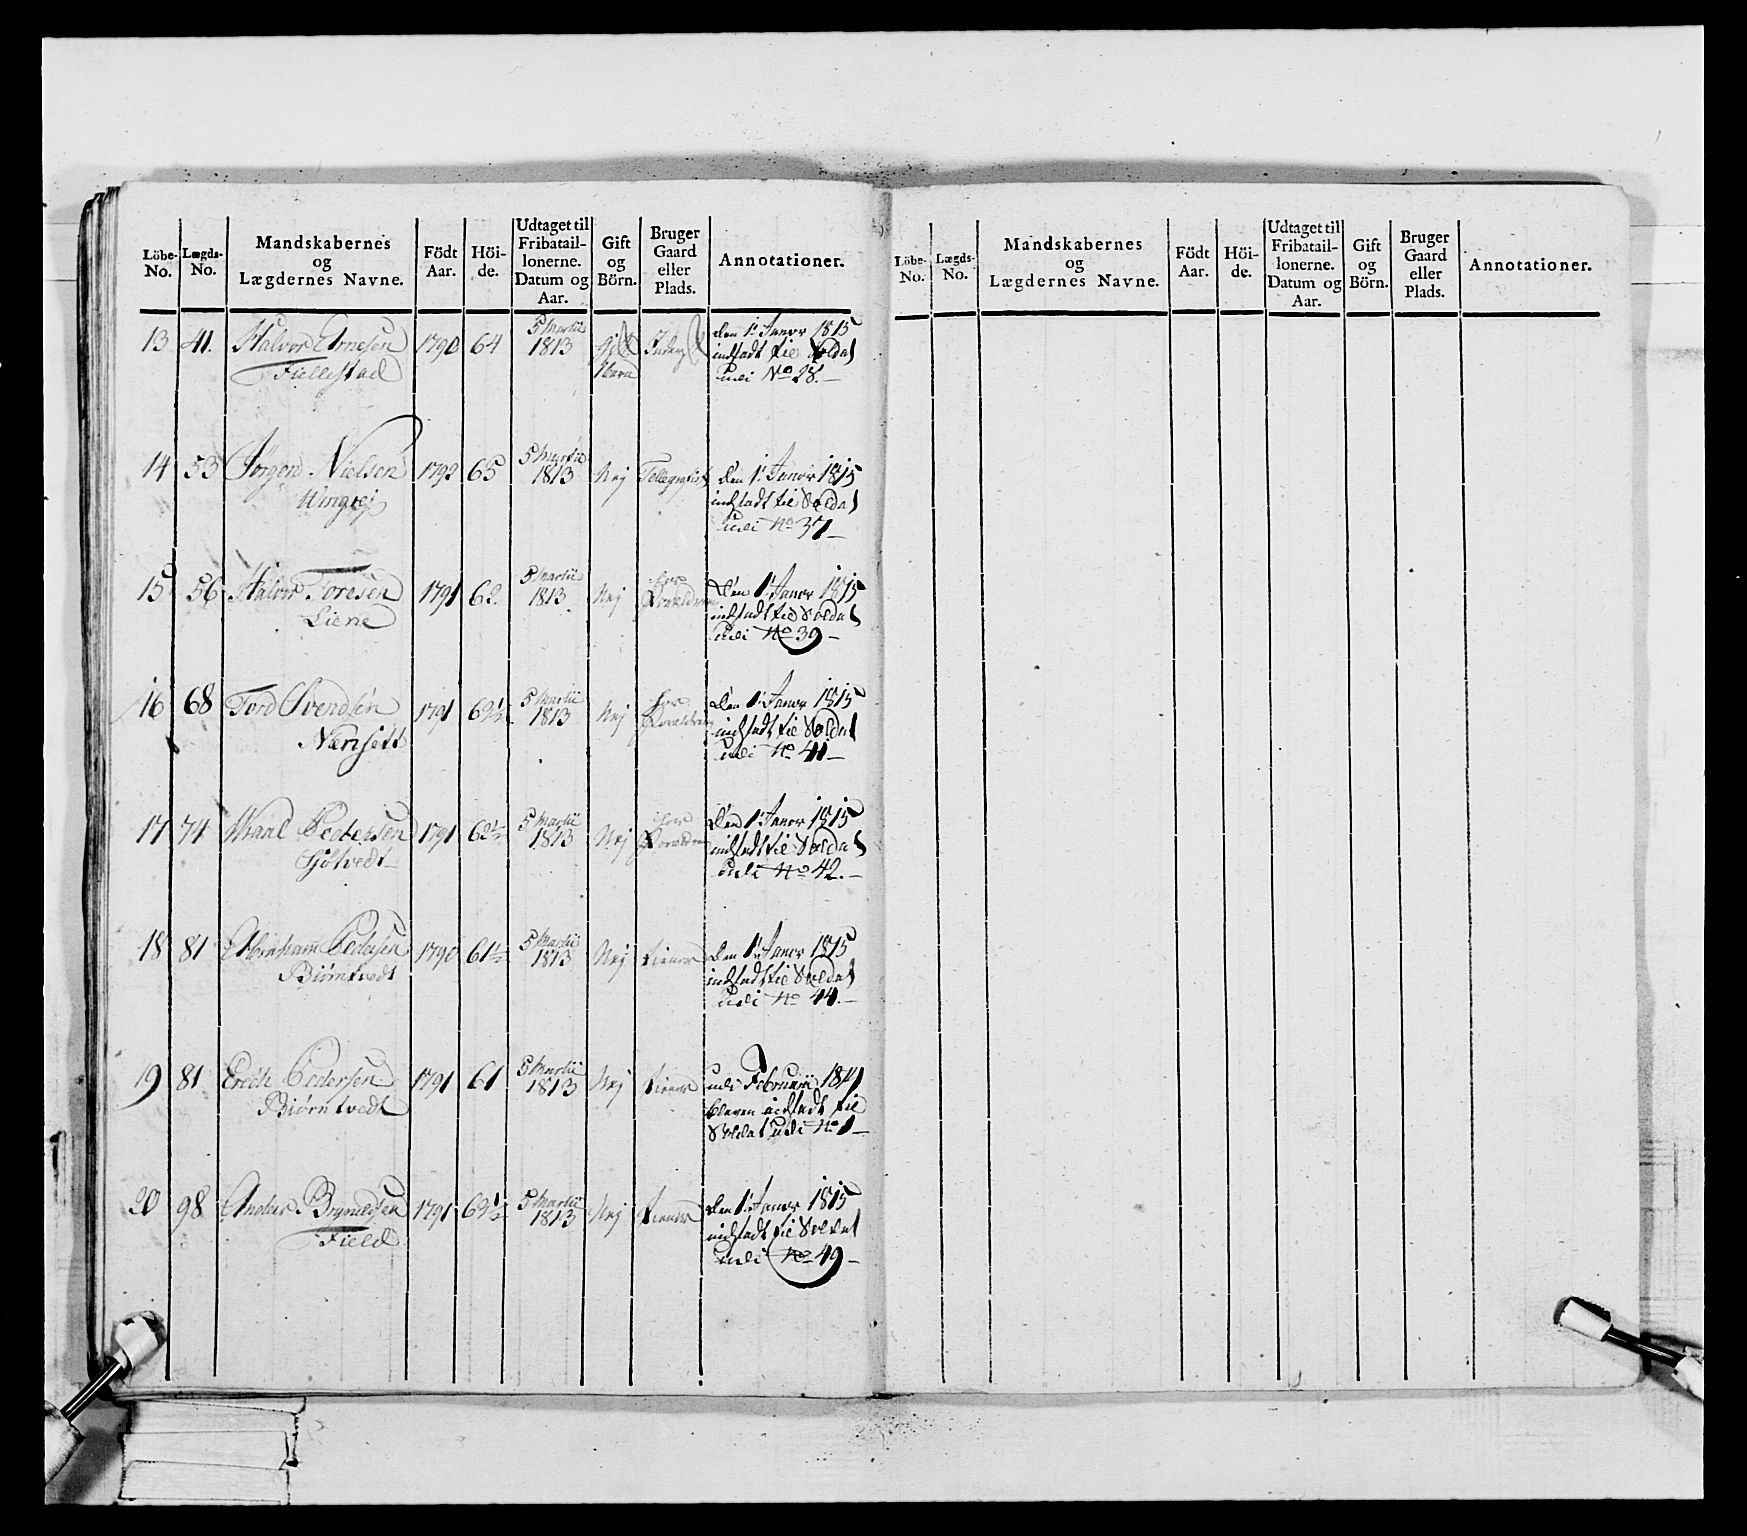 Löbe-No. Lægds-No. Mandskabernes og Lægdernes Navne. Födt Aar. Höi-de. Udtaget til Fribatail-lonerne. Datum og Aar. Gift og Börn. Bruger Gaard eller Plads. Annotationer.
Löbe-No. Lægds-No. Mandskabernes og Lægdernes Navne. Födt Aar. Höi-de. Udtaget til Fribatail-lonerne. Datum og Aar. Gift og Börn. Bruger Gaard eller Plads. Annotationer.
13 41. Halvor Arnesen 1790 64 5 Martii 1813 Gift Inderst den 1. Janvr 1815
Fiellestad indsadt til Soldat
udi No 28.—
14 53 Jørgen Nielsen 1792 65 5 Martii 1813 Nej Tellegrafist den 1. Janvr 1815
indsadt til Soldat
udi No 37—
15 56 Halvor Toresen 1791 62. 5 Martii 1813 Nej hos Forældrene Den 1. Janvr 1815
Liene indsadt til Soldat
udi No 39—
16 68 Tord Svendsen 1791 62½ 5 Martii 1813 Nej hos Forældrene Den 1. Janvr 1815
Nensett indsadt til Soldat
udi No 41—
17 74 Pedersen 1791 62½ 5 Martii 1813 Nej hos Forældrene Den 1. Janvr 1815
indsadt til Soldat
udi No 42.—
18 81 Abraham Pedersen 1790 61½ 5 Martii 1813 Nej tiener Den 1. Janvr 1815
Biörntvedt indsadt til Soldat
udi No 44.—
19 81 Erich Pedersen 1791 61 5 Martii 1813 Nej tiener udi Februarii 1814
Biörntvedt bleven indsadt til
Soldat udi No 1—
20 98 Anders Bryneldsen 1791 62½ 5 Martii 1813 Nej tiener den 1. Janvr 1815
Field indsadt til Soldat
udi No 49—